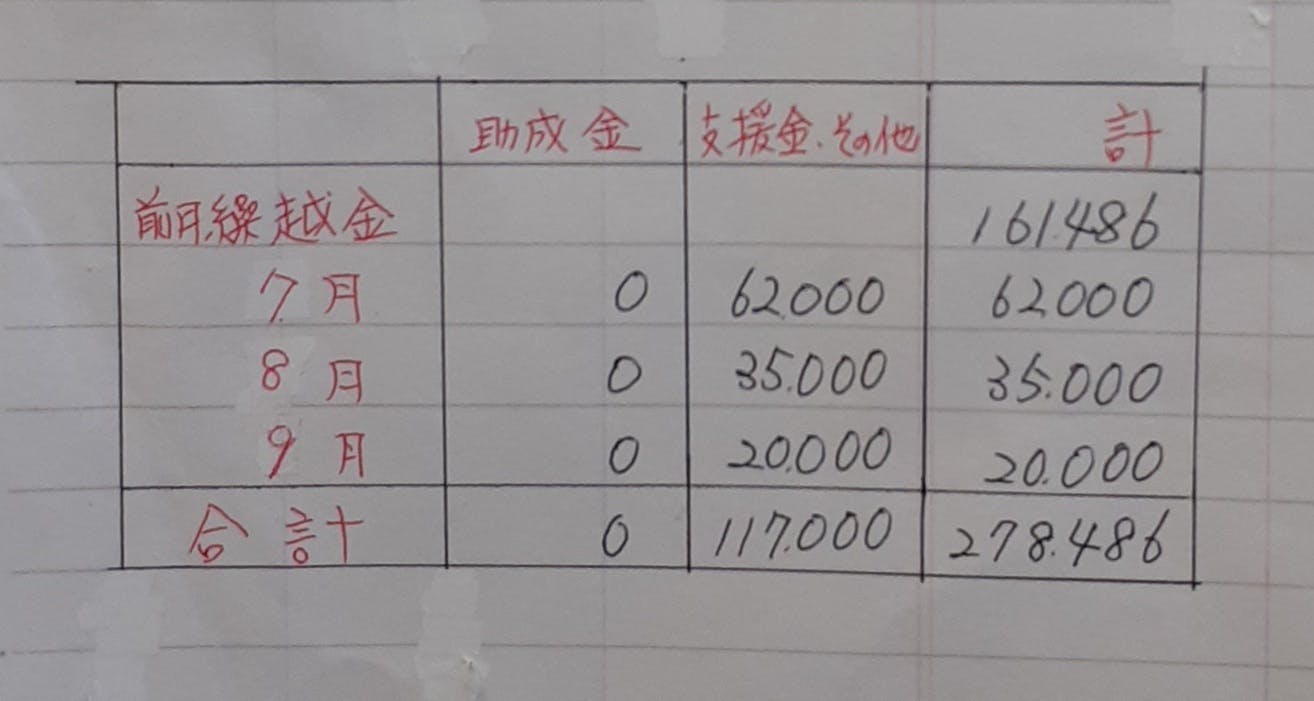 助成金 支援金.その他 計
前月繰越金 161.486
7月 0 62.000 62000
8月 0 35.000 35.000
9月 0 20.000 20.000
合計 0 117.000 278.486